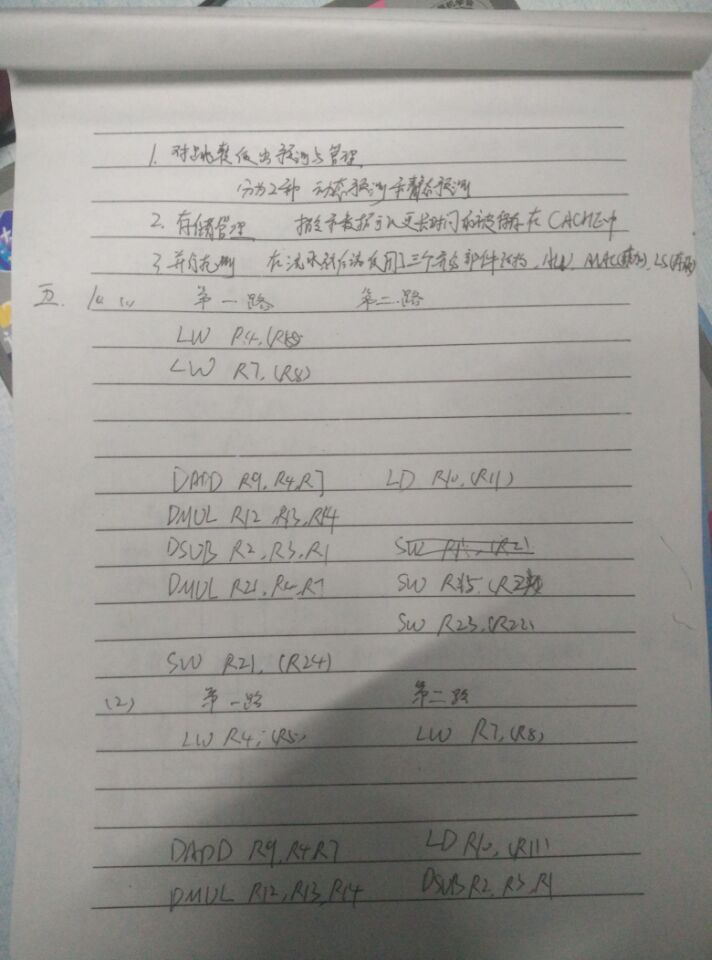 1. 对跳转做出预测与管理
分为2种 动态预测和静态预测
2. 存储管理 指令和数据可以更长时间的被储存在CACHE中
3. 并行机制 在流水线后该反用了三个并行部件结构, ALU, MAC(乘加), LS(存取)
五. 1. (1) 第一路 第二路
LW R4, (R5)
LW R7, (R8)
DADD R9, R4, R7 LD R10, (R11)
DMUL R12, R13, R14
DSUB R2, R3, R1
DMUL R21, R4, R7 SW R15,
SW R23, (R22)
SW R21, (R24)
(2) 第一路 第二路
LW R4, (R5) LW R7, (R8)
DADD R9, R4 R7 LD R10, (R11)
DMUL R12, R13, R14 DSUB R2, R3, R1